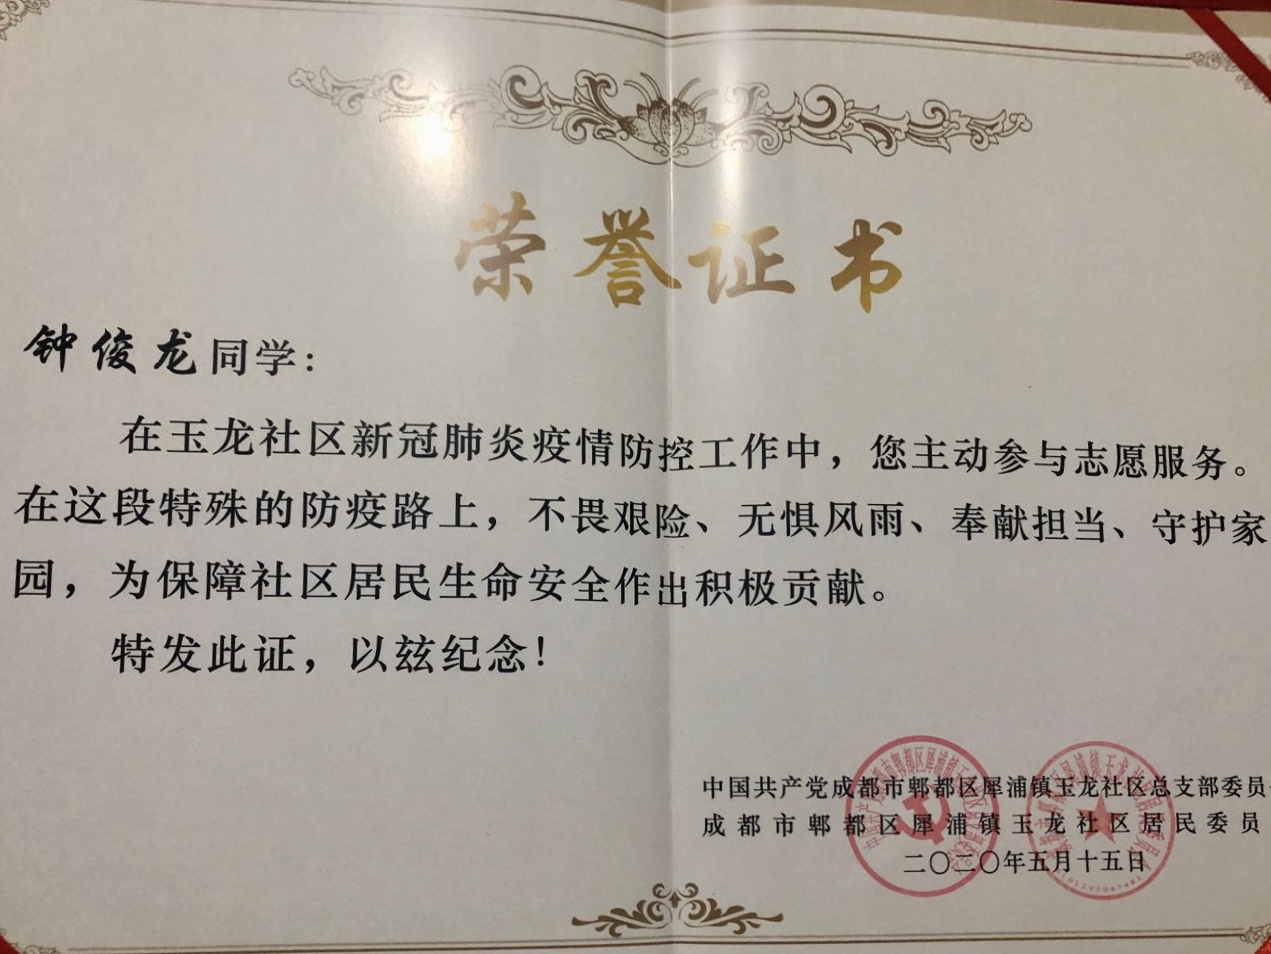 荣誉证书
钟俊龙同学：
在玉龙社区新冠肺炎疫情防控工作中，您主动参与志愿服务。
在这段特殊的防疫路上，不畏艰险、无惧风雨、奉献担当、守护家
园，为保障社区居民生命安全作出积极贡献。
特发此证，以兹纪念！
中国共产党成都市郫都区犀浦镇玉龙社区总支部委员
成都市郫都区犀浦镇玉龙社区居民委员
二〇二〇年五月十五日